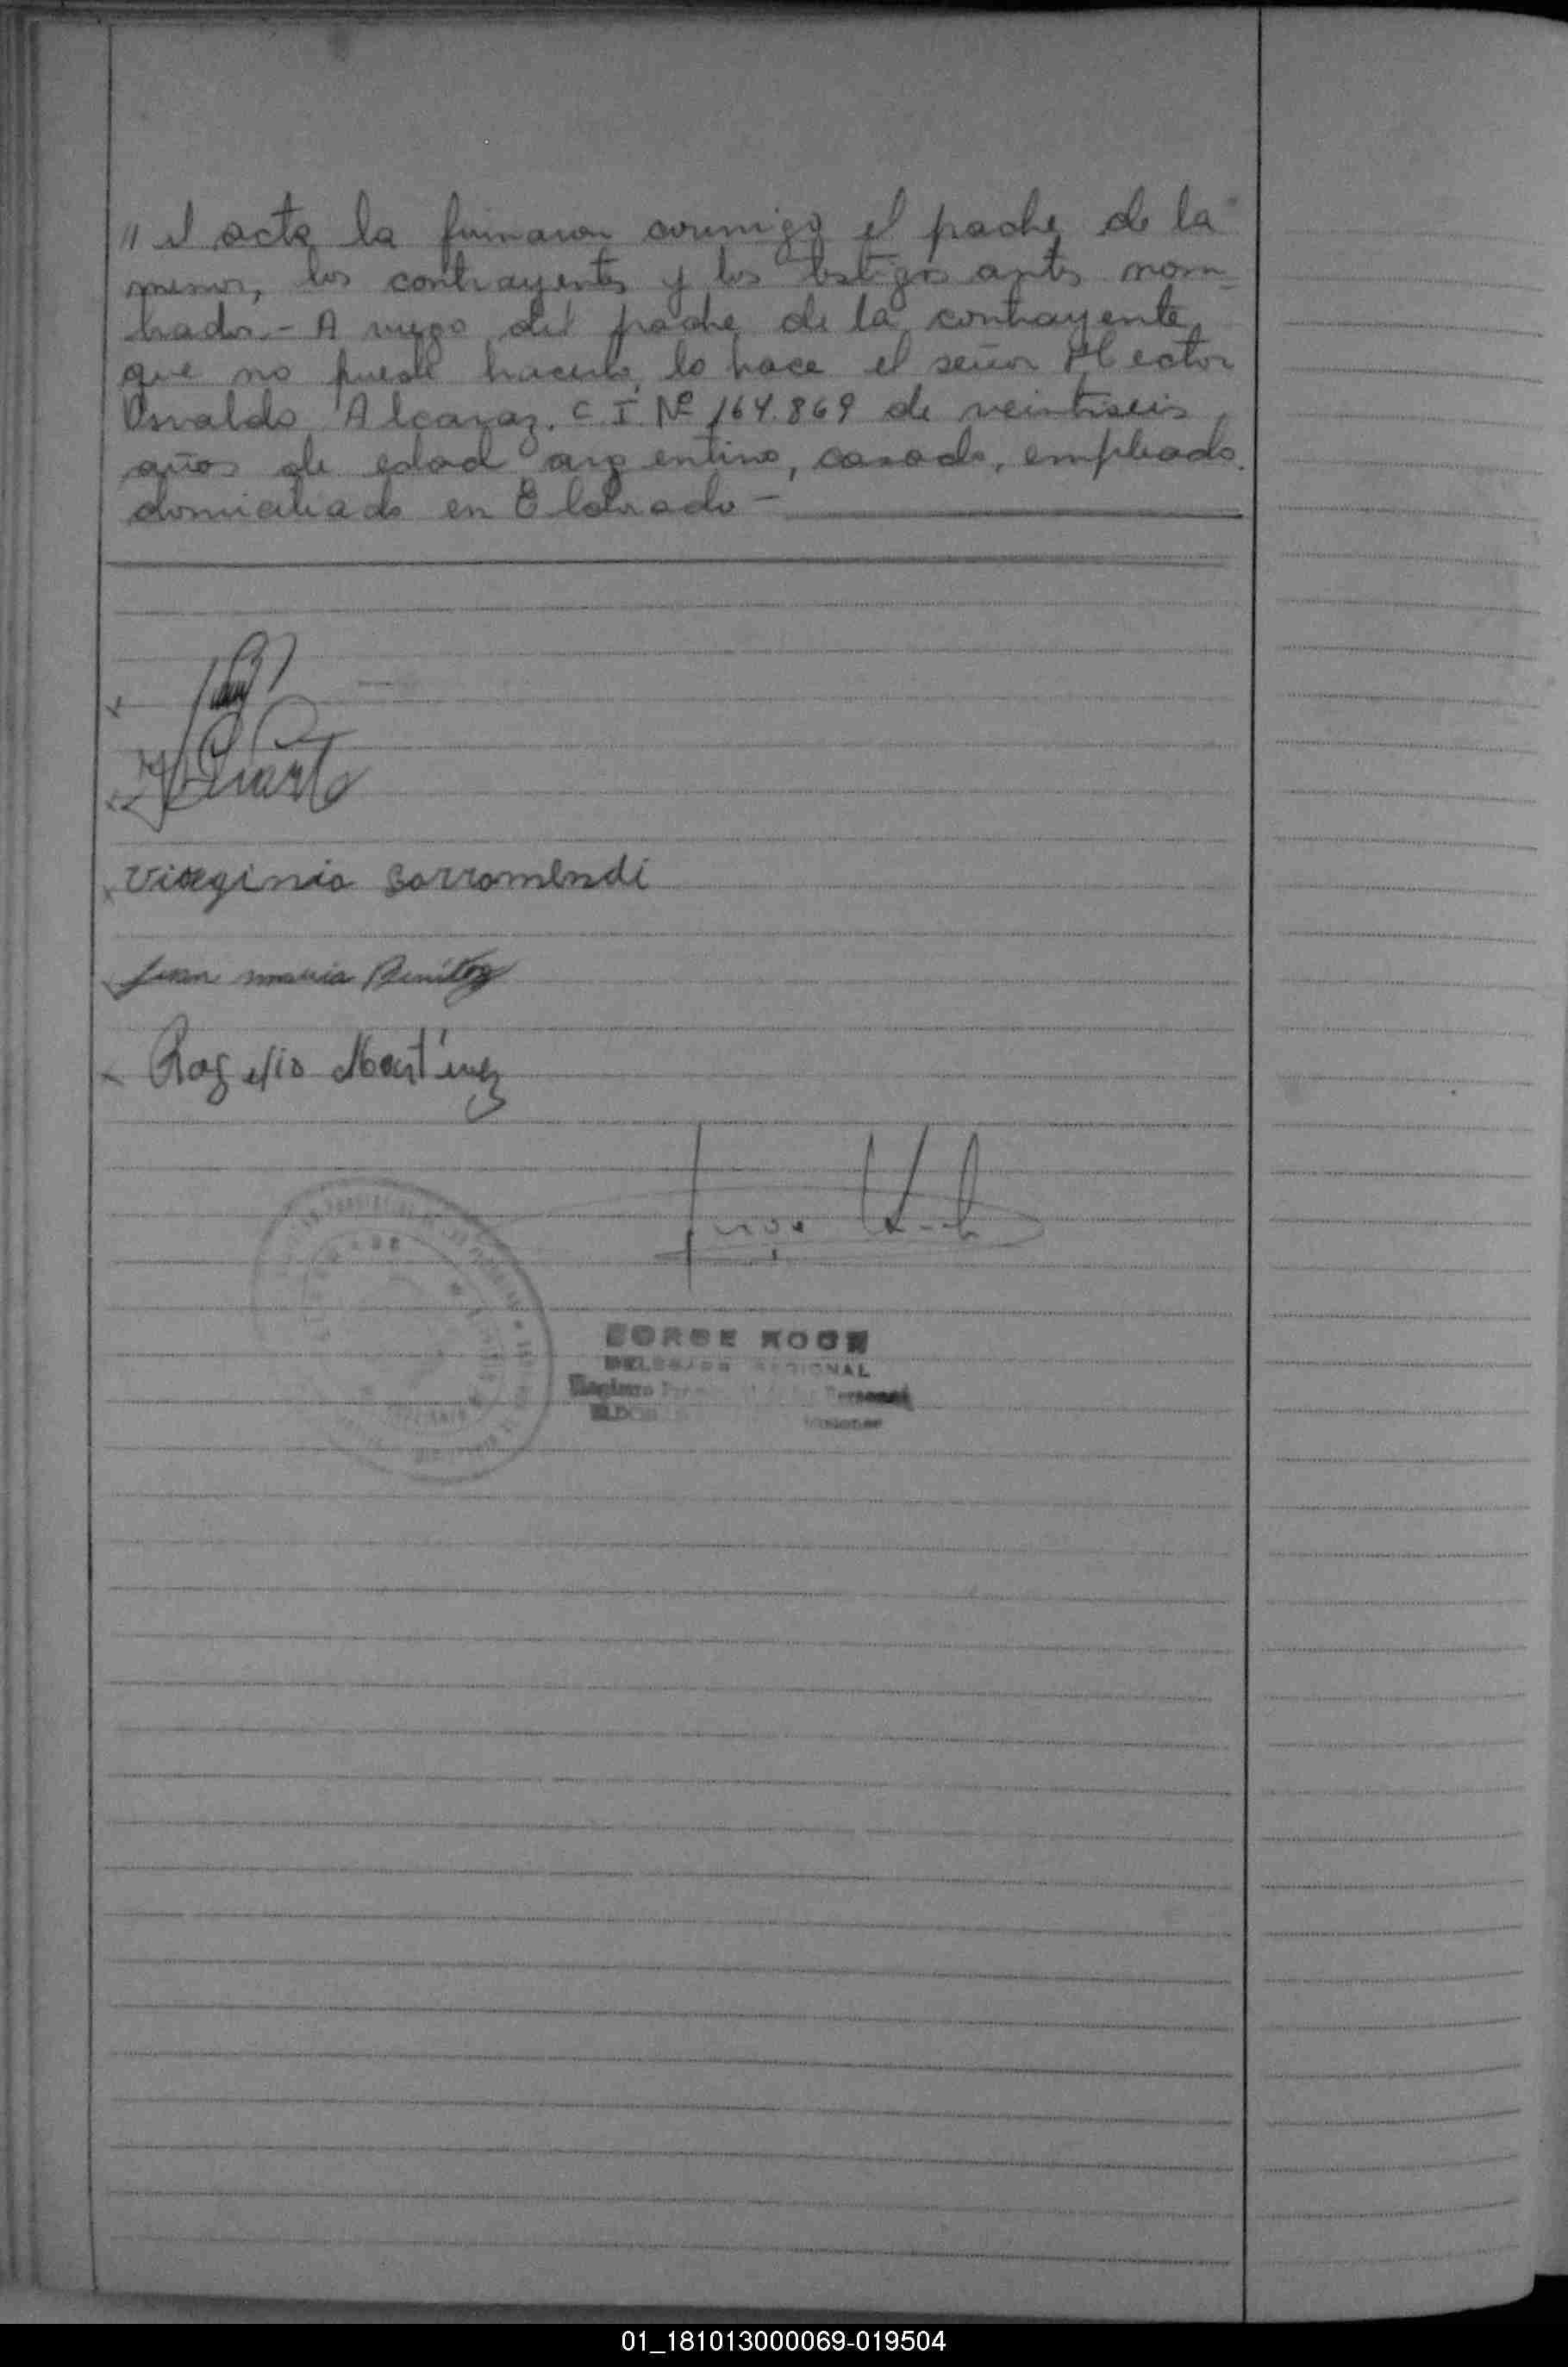 " el acta la firmaron conmigo el padre de la
menor, los contrayentes y los testigos antes nom-
brados.- A ruego del padre de la contrayente
que no puede hacerlo, lo hace el señor Hector
Osvaldo Alcaraz. C.I. Nº 164.869 de veintiseis
años de edad argentino, casado, empleado,
domiciliado en Eldorado -
Duarte
Virginia Sarromendi
Juan maria Benitez
Rogelio Martinez
JORGE KOCH
DELEGADO REGIONAL
Registro Personas
Misiones
01_181013000069-019504